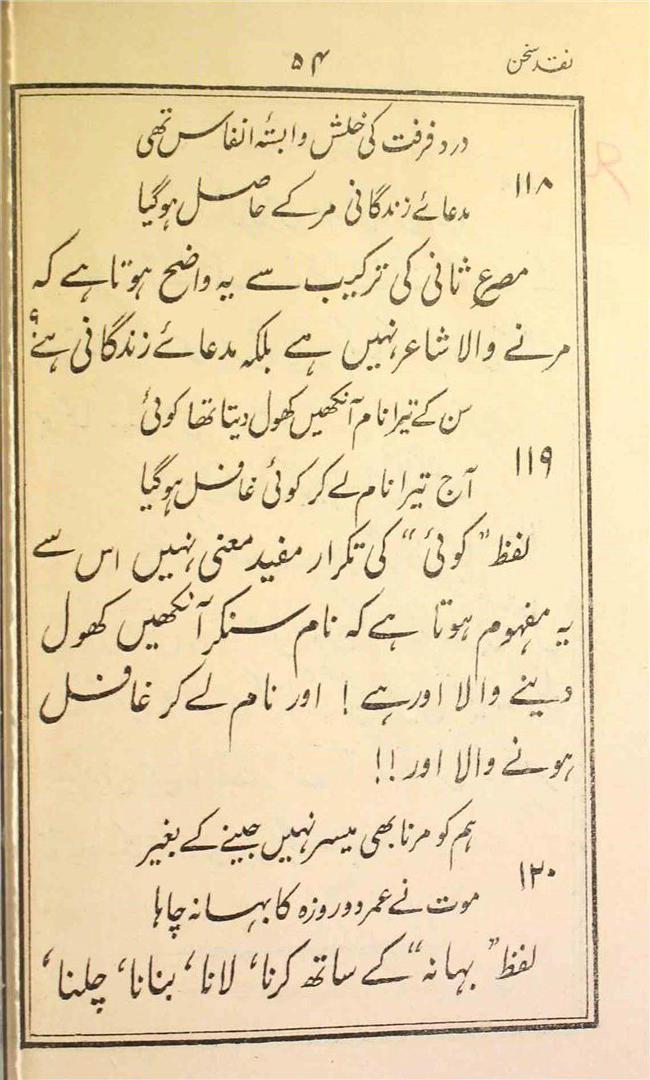 نقد سخن
۵۴
درد فرقت کی خلش وابستۂ انفاس تھی
۱۱۸
مدعائے زندگانی مر کے حاصل ہو گیا
مصرعِ ثانی کی ترکیب سے یہ واضح ہوتا ہے کہ
مرنے والا شاعر نہیں ہے بلکہ مدعائے زندگانی ہے؟
سن کے تیرا نام آنکھیں کھول دیتا تھا کوئی
۱۱۹
آج تیرا نام لے کر کوئی غافل ہو گیا
لفظ ”کوئی“ کی تکرار مفید معنی نہیں اس سے
یہ مفہوم ہوتا ہے کہ نام سنکر آنکھیں کھول
دینے والا اور ہے! اور نام لے کر غافل
ہونے والا اور!!
ہم کو مرنا بھی میسر نہیں جینے کے بغیر
۱۲۰
موت نے عمر دو روزہ کا بہانہ چاہا
لفظ ”بہانہ“ کے ساتھ کرنا، لانا، بنانا، چلنا،